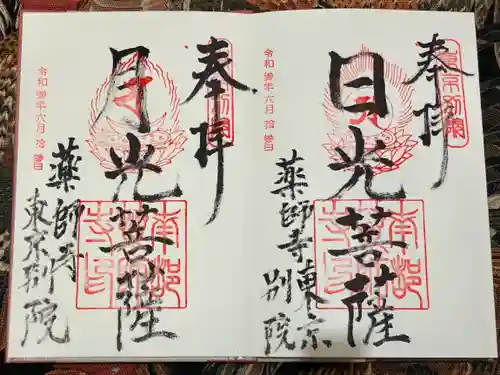 奉拝
東京別院
日光菩薩
南都
寺印
薬師寺
東京
別院
令和 年六月 拾 日
奉拝
東京別院
月光菩薩
南都
寺印
薬師寺
東京別院
令和 年六月 拾 日